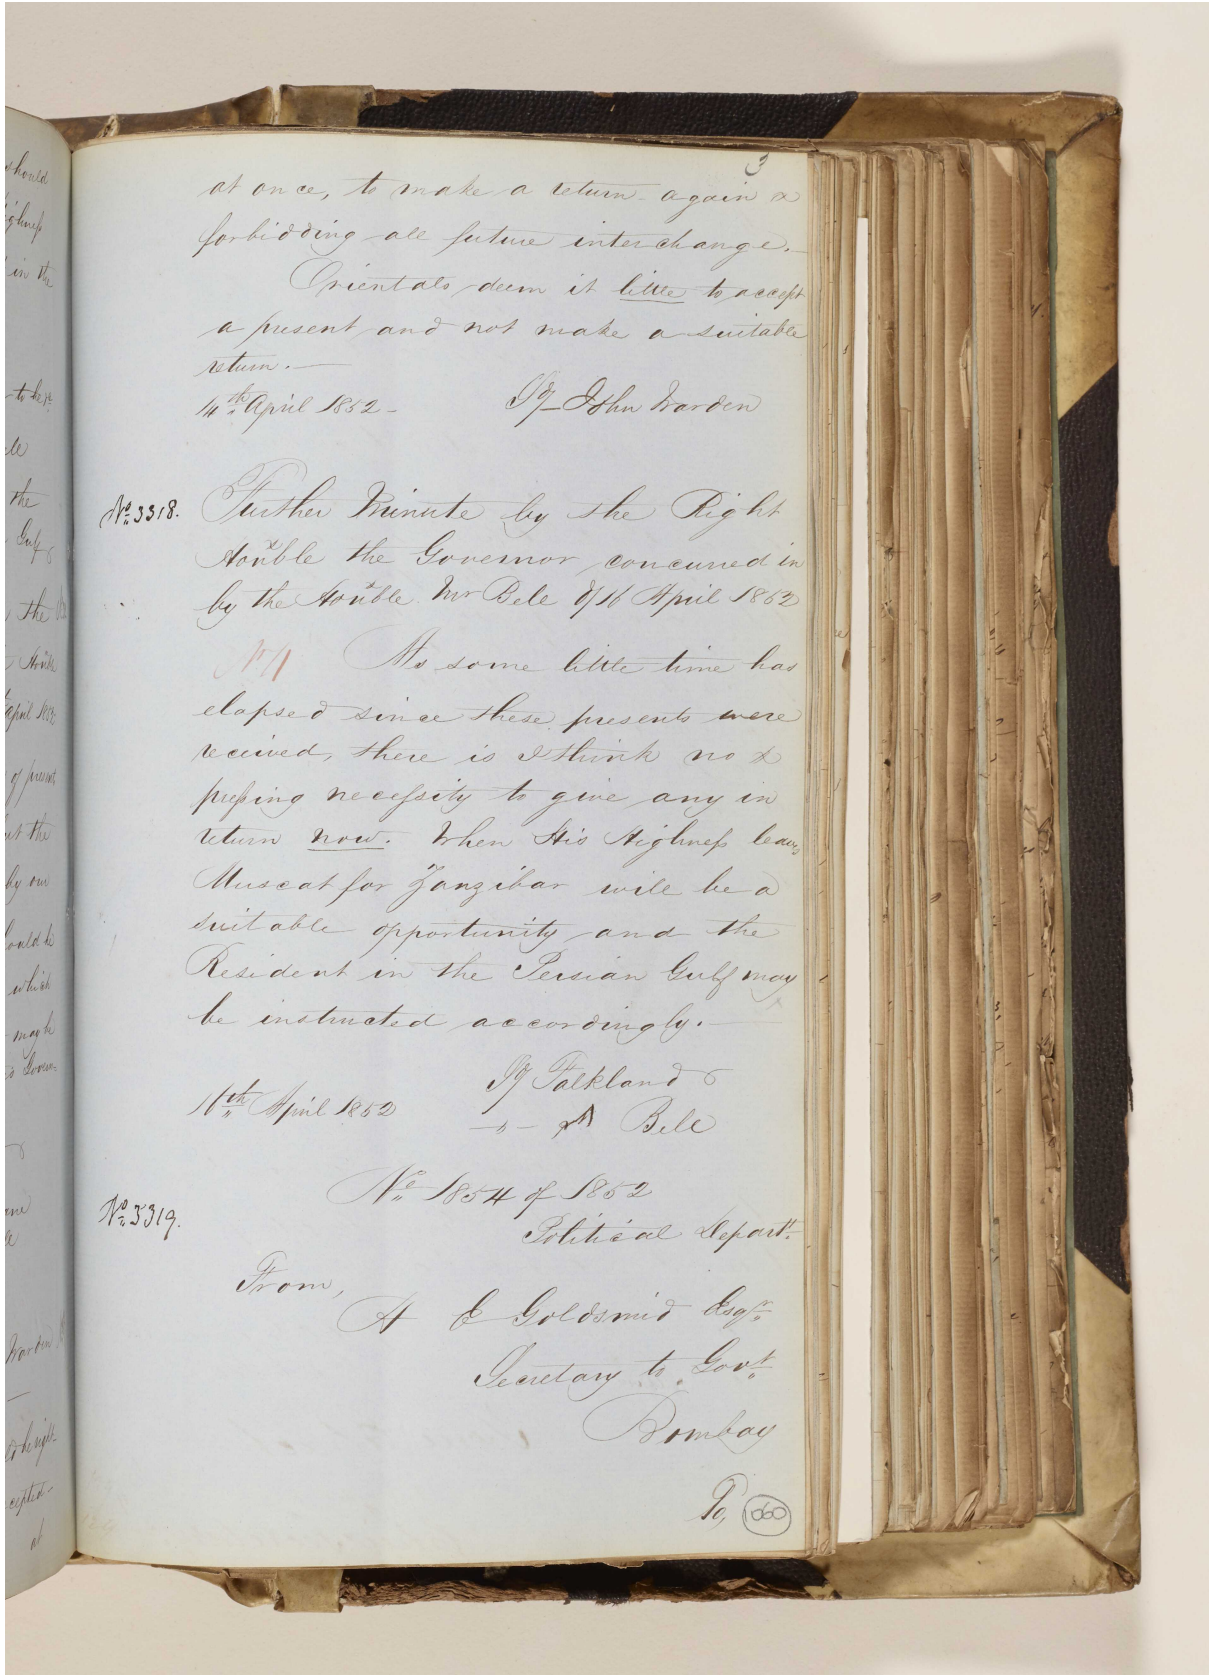 should
ighness
in the
to be
the
Gulf
the
Honble
April 1852
of presents
but the
by our
could be
which
may be
Warden
cepted
at
3
at once, to make a return again &
forbidding all future interchange.
Orientals deem it little to accept
a present and not make a suitable
return.
14th April 1852
Sd/ John Warden
No. 3318.
Further Minute by the Right
Honble the Governor concurred in
by the Honble Mr Bell d/ 16 April 1852
As some little time has
elapsed since these presents were
received, there is I think no
pressing necessity to give any in
return now. When His Highness leaves
Muscat for Zanzibar will be a
suitable opportunity and the
Resident in the Persian Gulf may
be instructed accordingly.
Sd/ Falkland
16th April 1852
-"- A Bell
No. 1854 of 1852
No. 3319.
Political Departt.
From,
H E Goldsmid Esqr.
Secretary to Govt.
Bombay
To,
1060